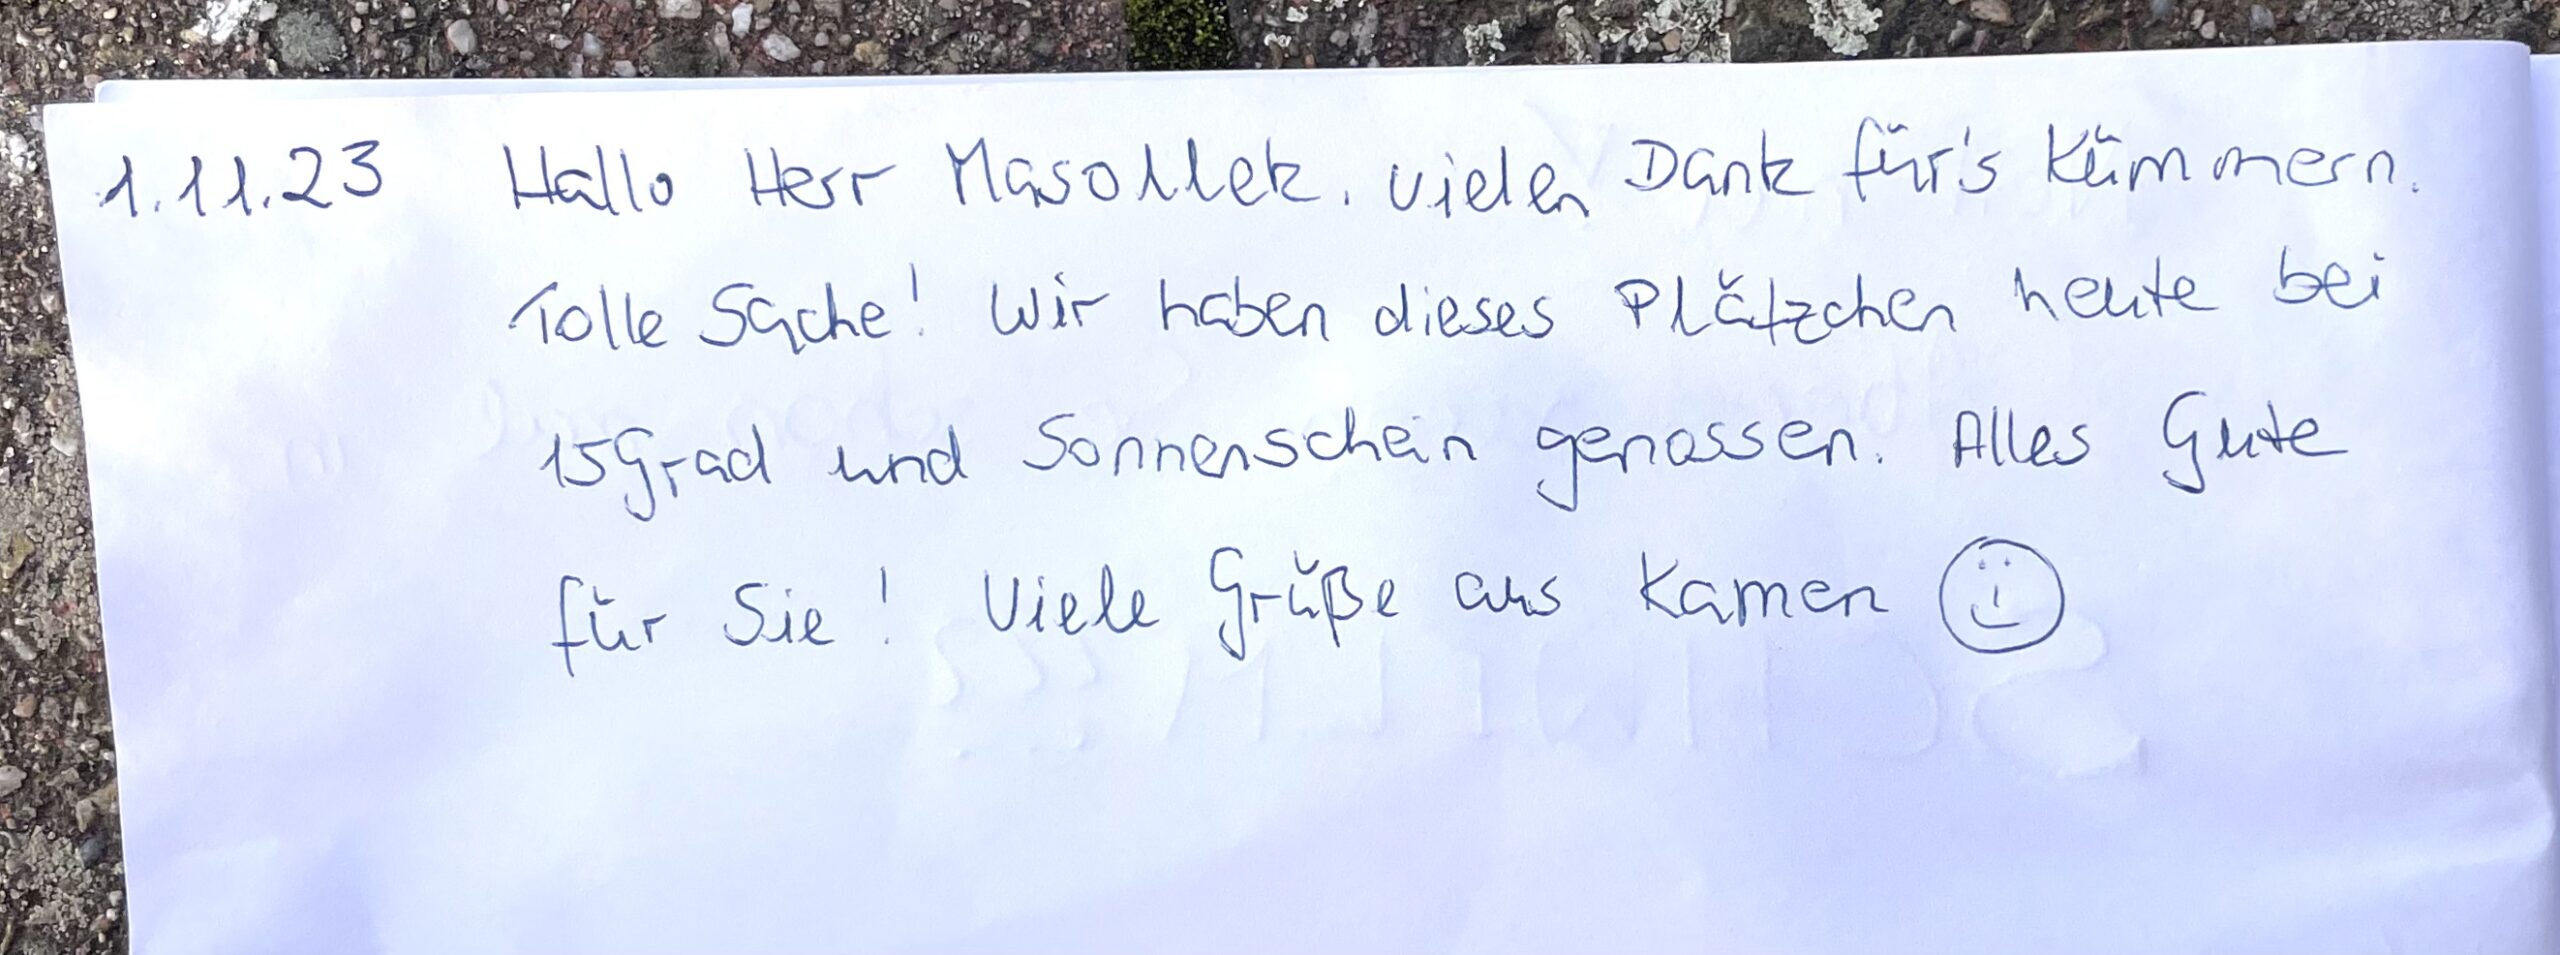 1.11.23 Hallo Herr Masollek. Vielen Dank für's Kümmern.
Tolle Sache! Wir haben dieses Plätzchen heute bei
15 Grad und Sonnenschein genossen. Alles Gute
für Sie! Viele Grüße aus Kamen